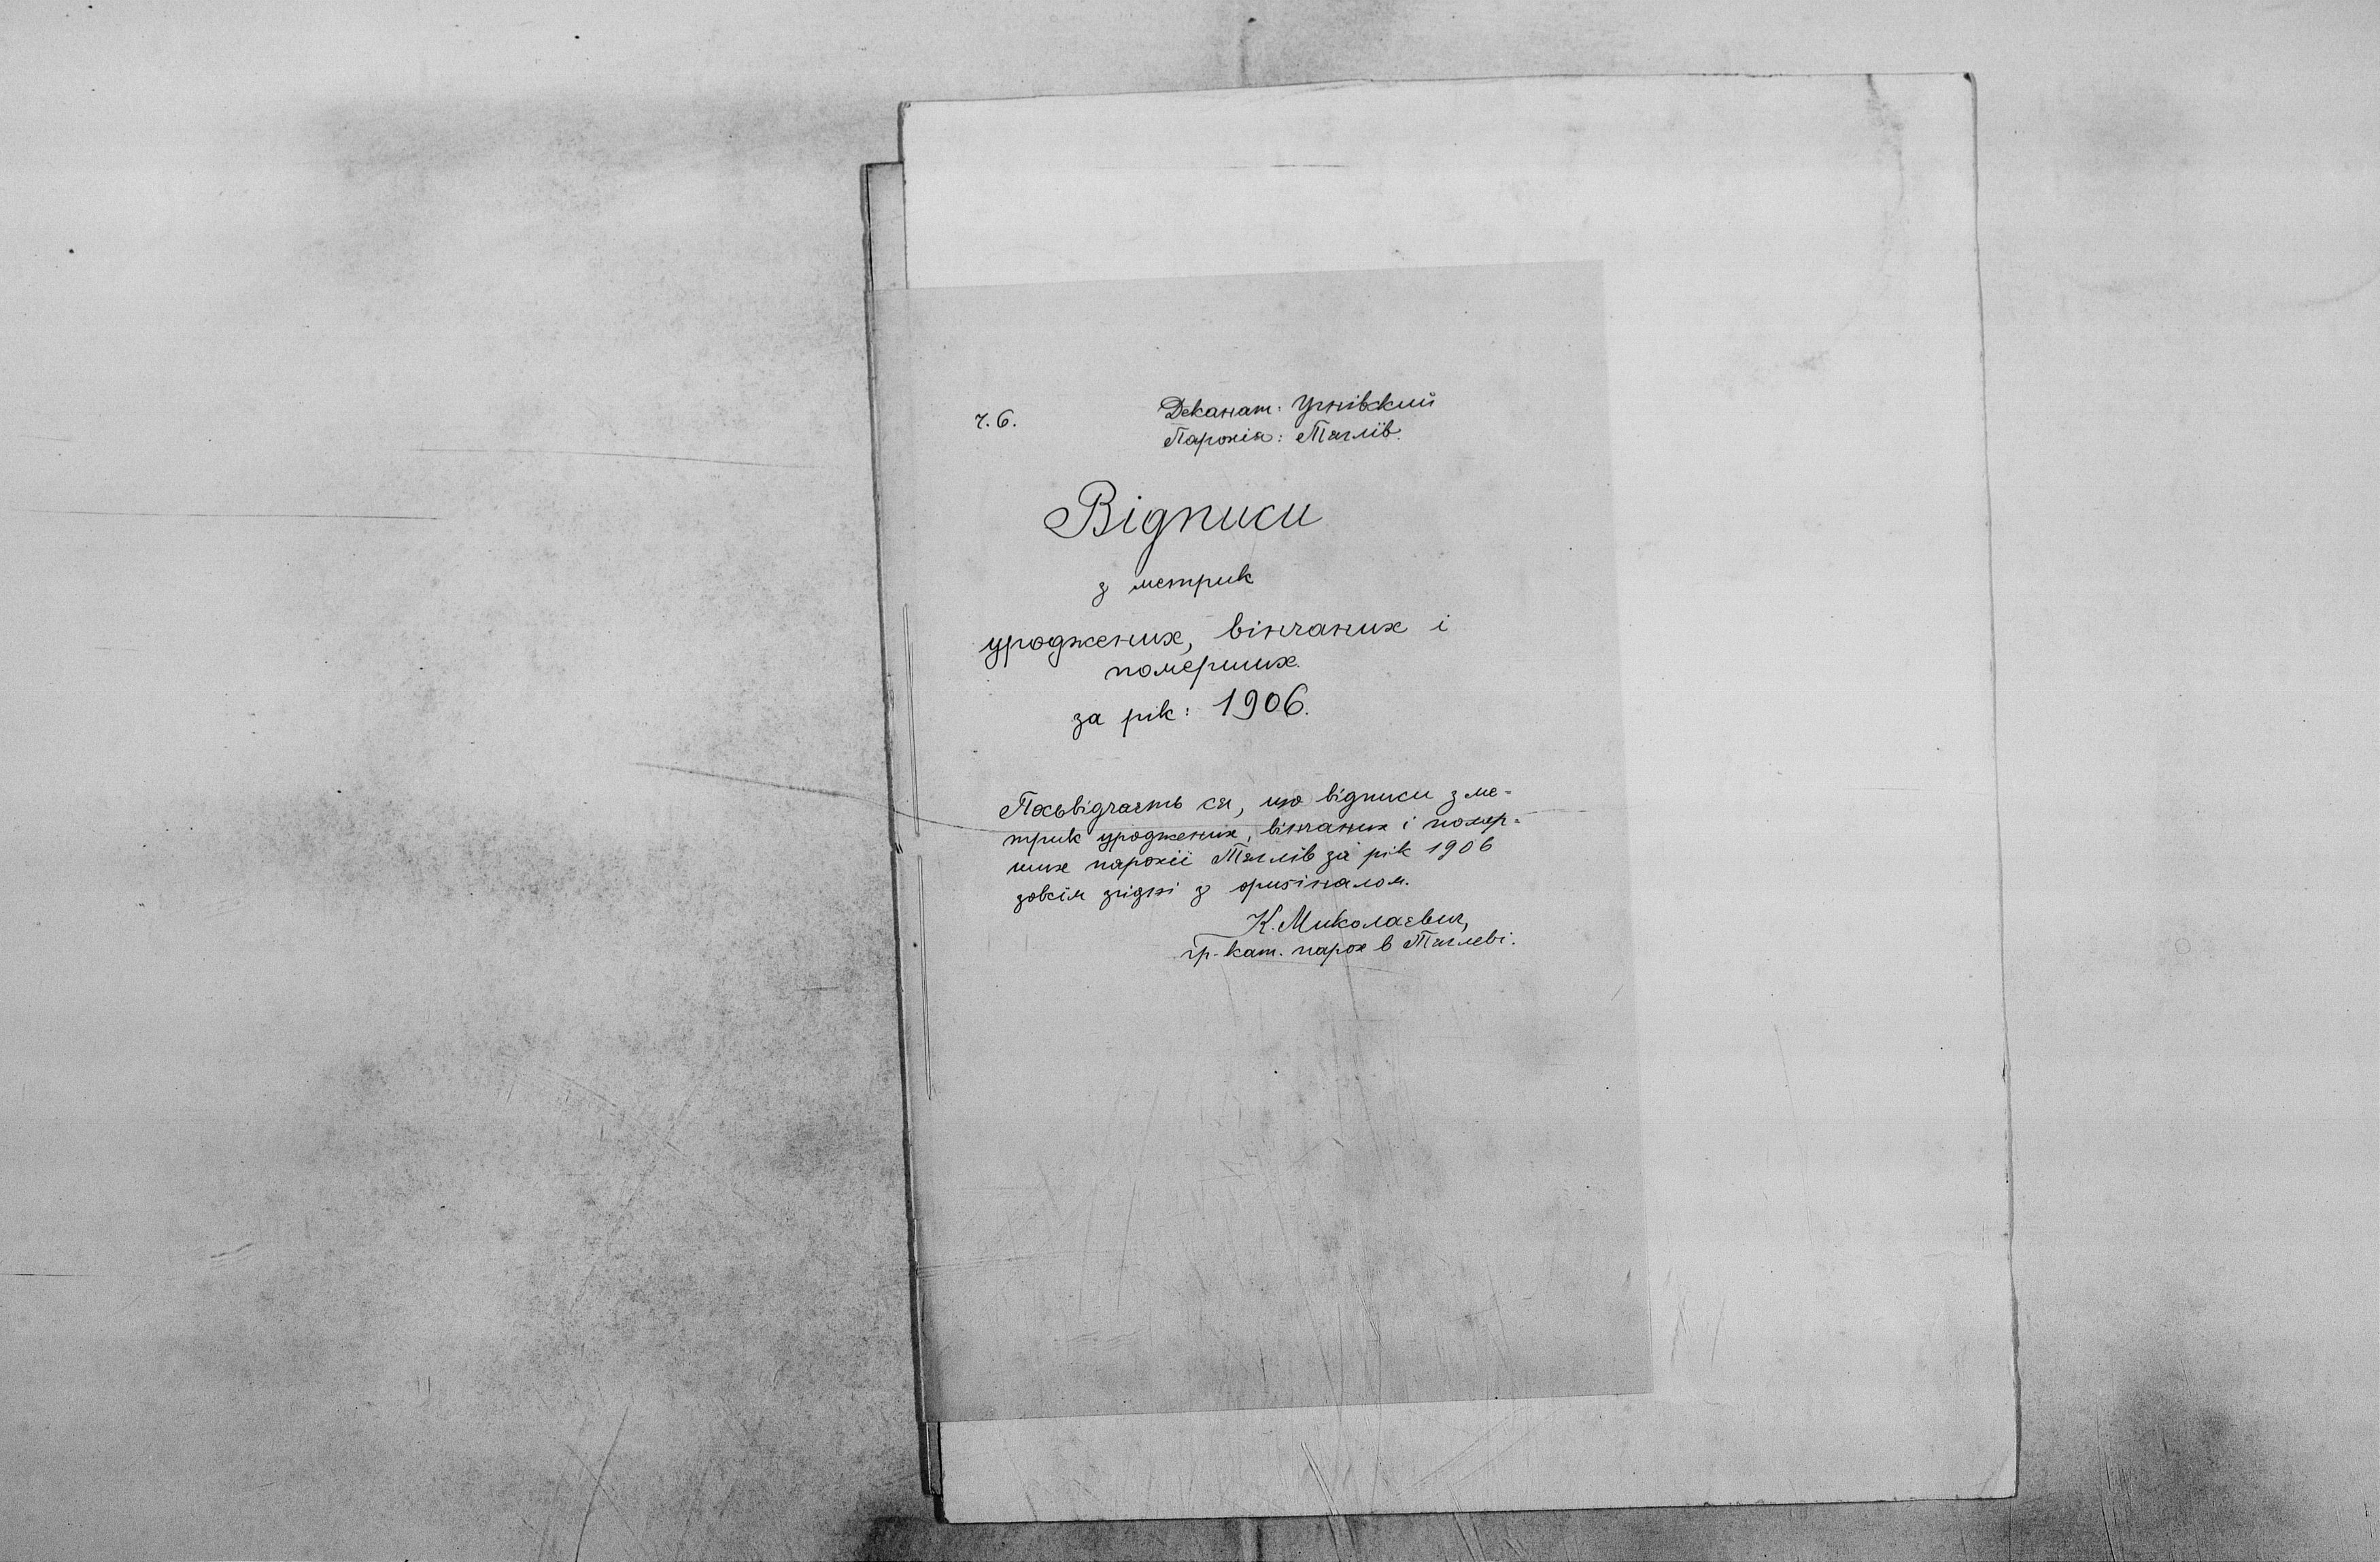 ч. 6.
Деканат: Угнівский
Парохія: Тяглїв.
Відписи
з метрик
уроджених, вінчаних і
померших
за рік: 1906.
Посьвідчаєть ся, що відписи з ме-
трик уроджених, вінчаних і помер-
ших парохії Тяглїв за рік 1906
зовсїм згідні з ориґіналом.
К. Миколаєвич,
гр.-кат. парох в Тяглеві.